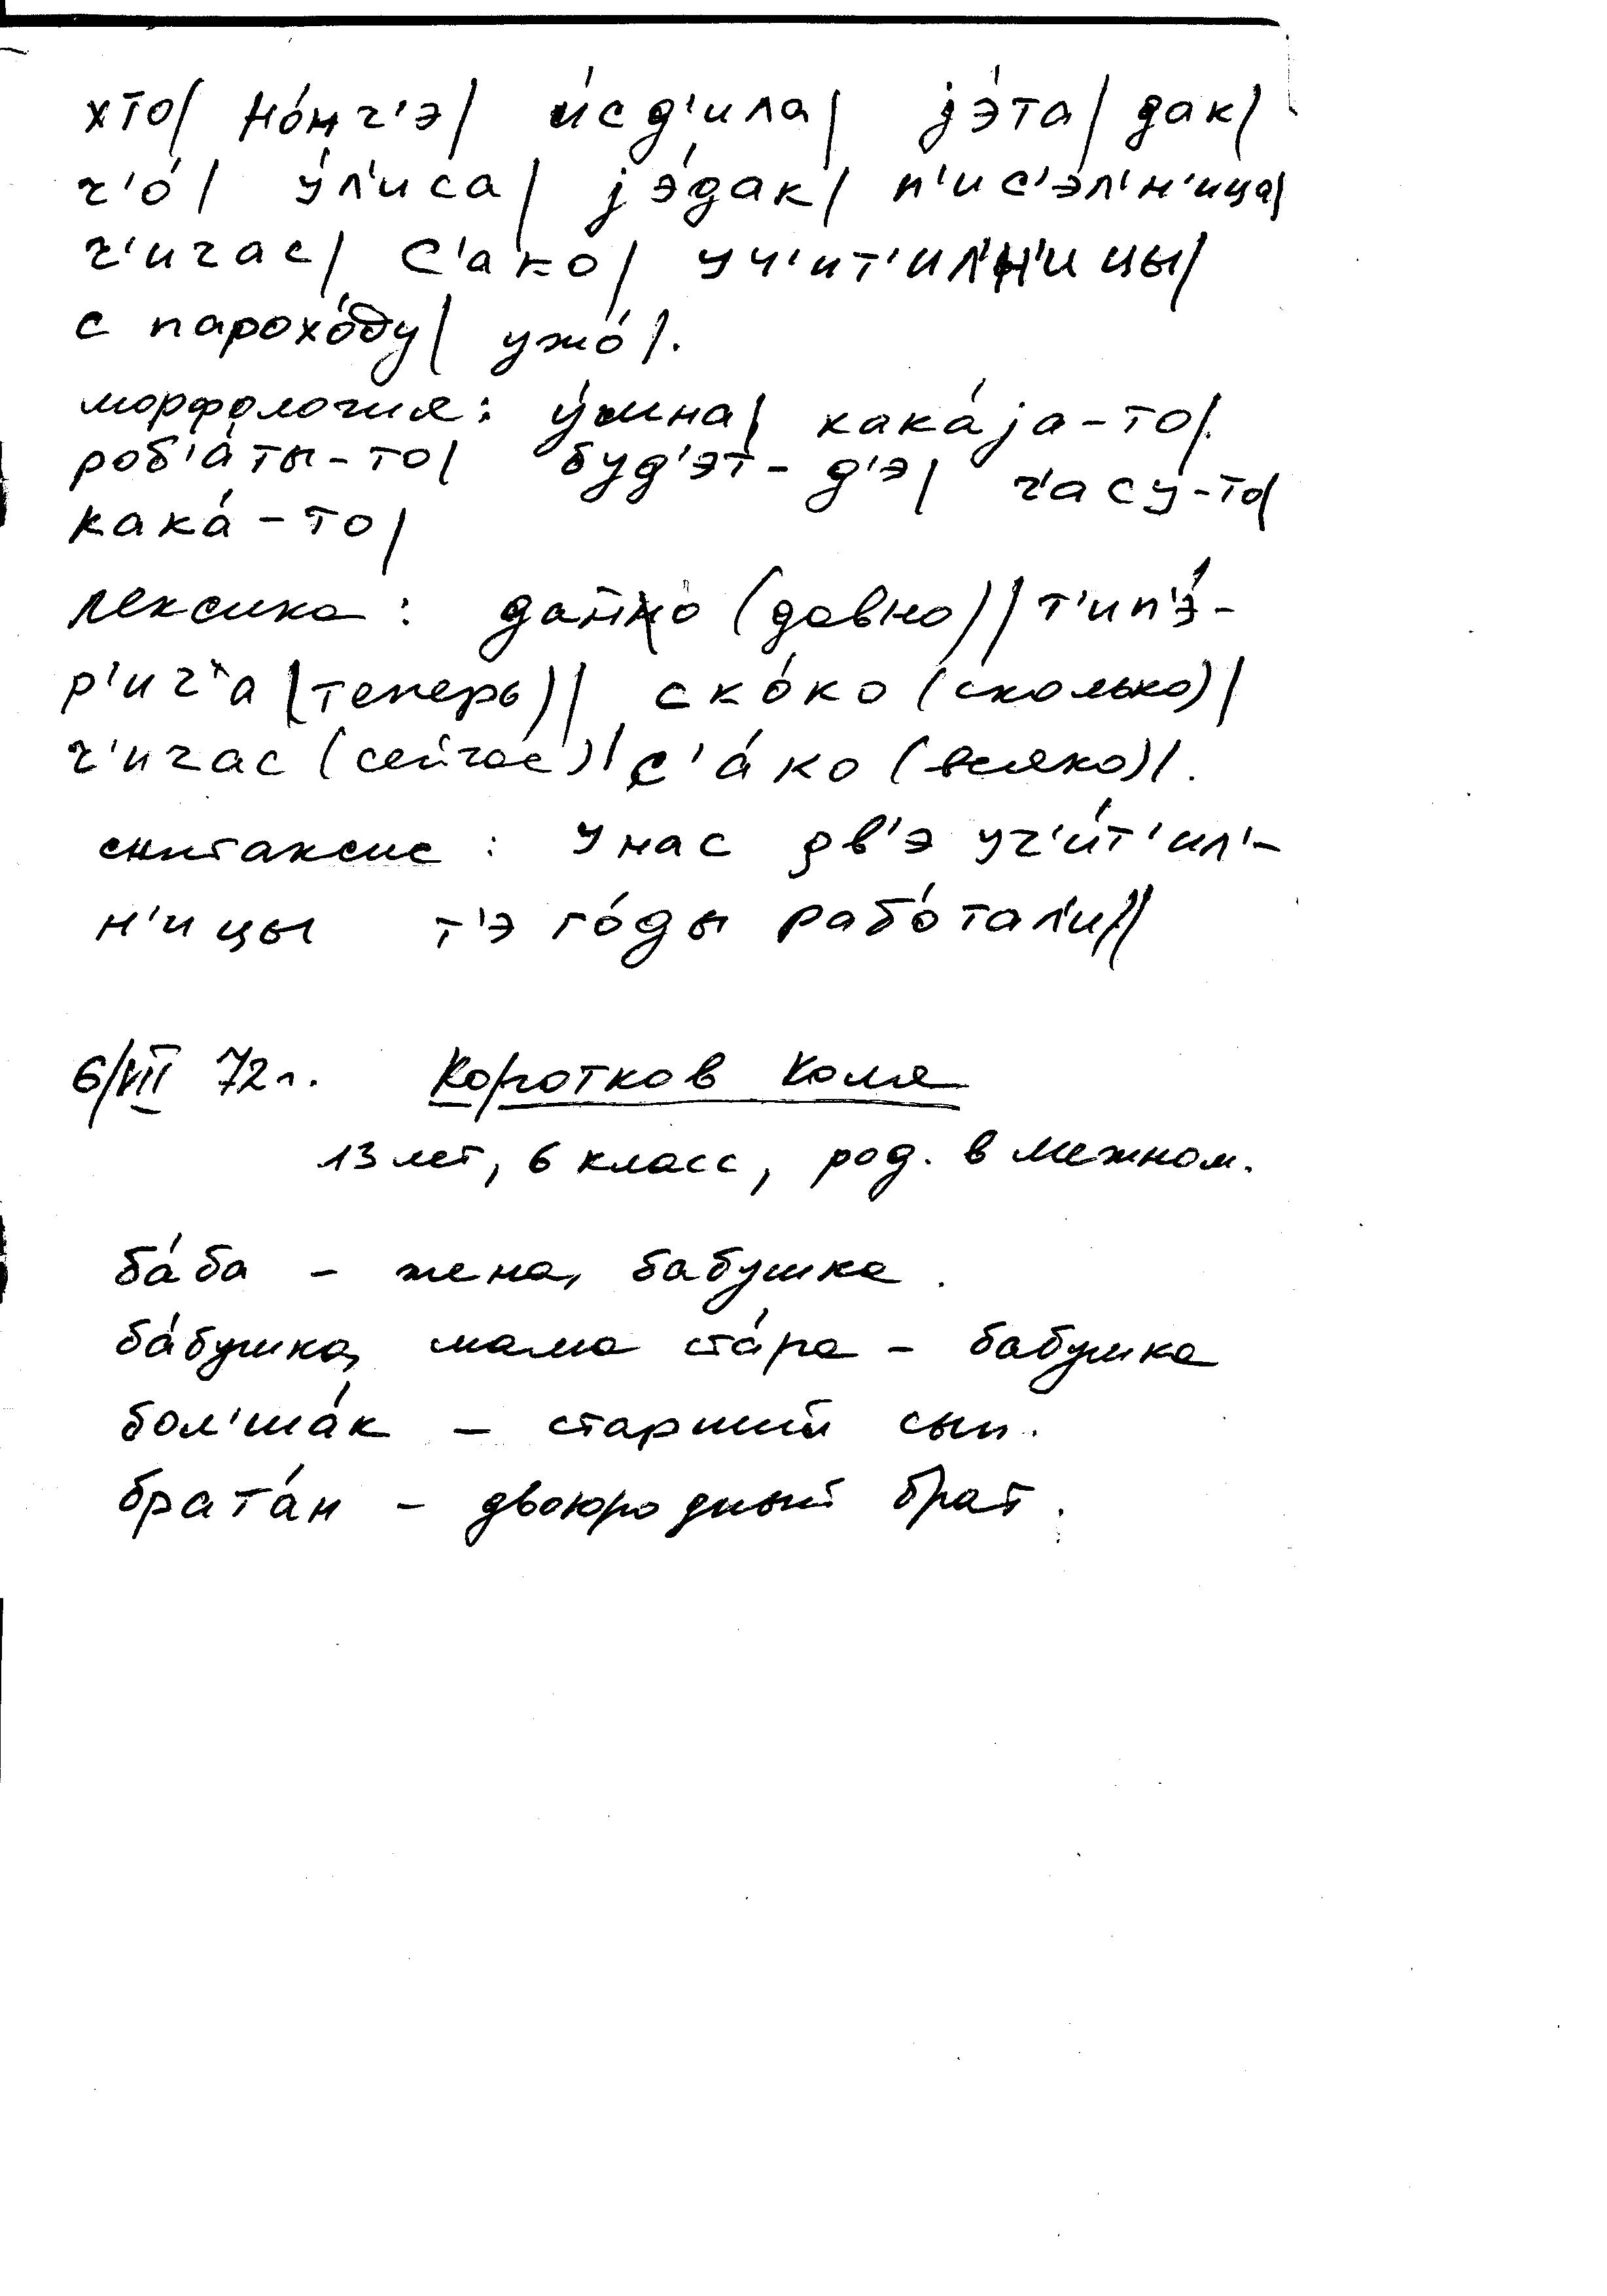 хто/ но́нч'э/ и́сд'ила/ јэ́та/ дак/
ч'о́/ у́л'иса/ јэ́дак/ п'ис'эл'н'ица/
ч'ичас/ с'ако/ уч'ит'ил'н'ицы/
с парохо́ду/ ужо́/.
морфология: у́мна/ кака́ја-то/.
роб'а́ты-то/ буд'эт-д'э/ ч'асу-то/
кака́-то/
лексика: (давно)/ т'ип'э́-
р'ич'а (теперь)/ ско́ко (сколько)/
ч'ичас (сейчас)/ с'а́ко (всяко)/.
синтаксис: У нас дв'э уч'и́т'ил'-
н'ицы т'э го́ды рабо́тал'и//
6/VII 72 г. Коротков Коля
13 лет, 6 класс, род. в Межном.
ба́ба - жена, бабушка.
ба́бушка, мама ста́ра - бабушка
бол'ша́к - старший сын.
брата́н - двоюродный брат.